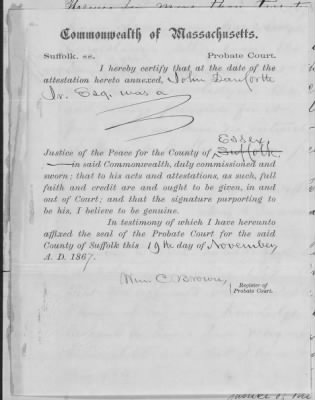 Commonwealth of Massachusetts.
Suffolk. ss. Probate Court.
I hereby certify that at the date of the
attestation hereto annexed, John Danforth
Jr. Esq. was a
Essex
Justice of the Peace for the County of Suffolk
in said Commonwealth, duly commissioned and
sworn; that to his acts and attestations, as such, full
faith and credit are and ought to be given, in and
out of Court; and that the signature purporting to
be his, I believe to be genuine.
In testimony of which I have hereunto
affixed the seal of the Probate Court for the said
County of Suffolk this 19th day of November,
A. D. 1867.
Wm C. Brown,
Register of
Probate Court.